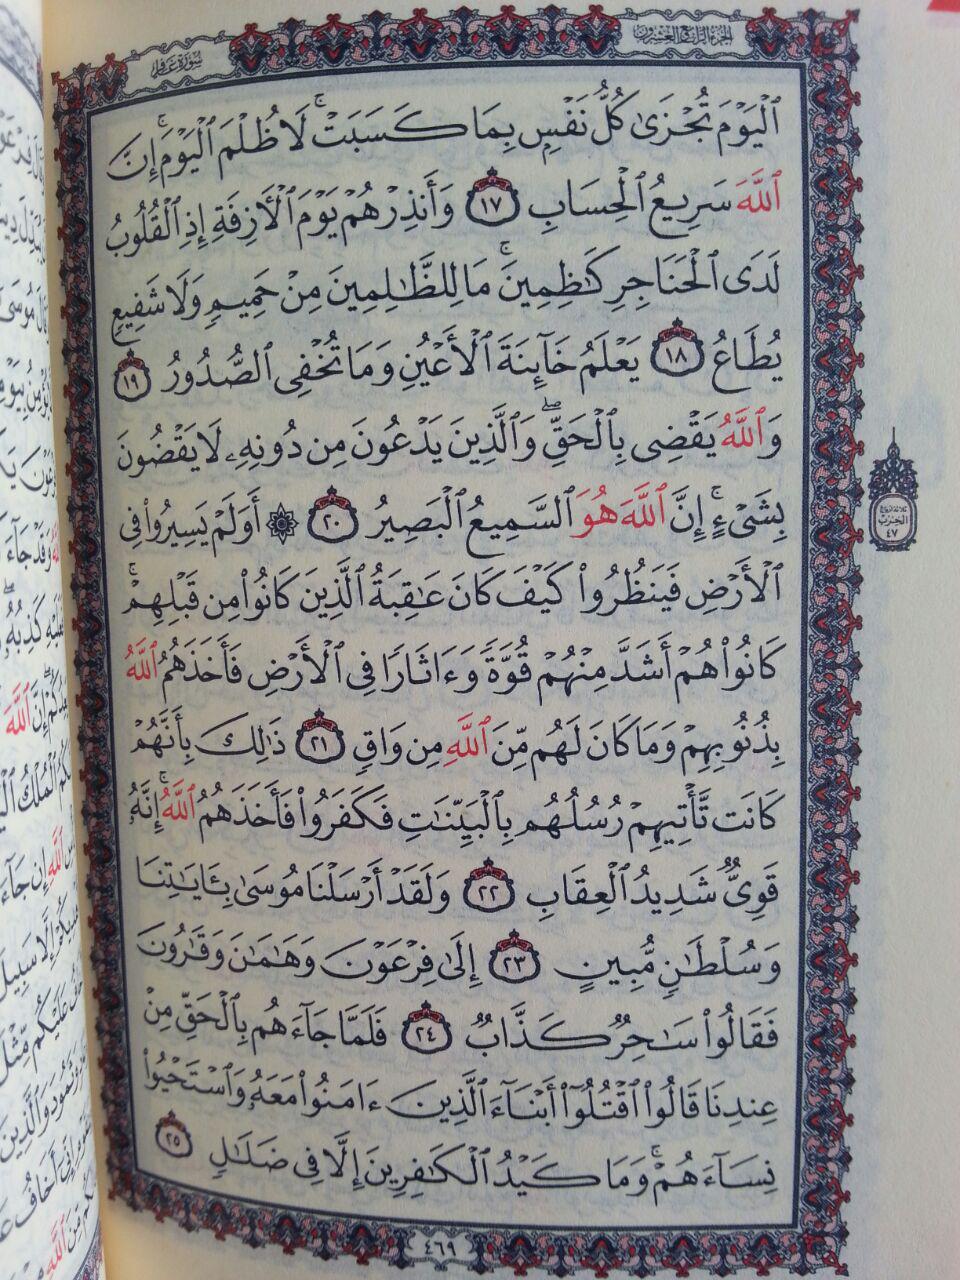 سُورَةُ غَافِرٍ
الجُزءُ الرَّابِعُ وَالعِشْرُونَ
ٱلْيَوْمَ تُجْزَىٰ كُلُّ نَفْسٍۭ بِمَا كَسَبَتْ ۚ لَا ظُلْمَ ٱلْيَوْمَ ۚ إِنَّ
ٱللَّهَ سَرِيعُ ٱلْحِسَابِ ١٧ وَأَنذِرْهُمْ يَوْمَ ٱلْأَزِفَةِ إِذِ ٱلْقُلُوبُ
لَدَى ٱلْحَنَاجِرِ كَـٰظِمِينَ ۚ مَا لِلظَّـٰلِمِينَ مِنْ حَمِيمٍ وَلَا شَفِيعٍ
يُطَاعُ ١٨ يَعْلَمُ خَآئِنَةَ ٱلْأَعْيُنِ وَمَا تُخْفِى ٱلصُّدُورُ ١٩
وَٱللَّهُ يَقْضِى بِٱلْحَقِّ ۖ وَٱلَّذِينَ يَدْعُونَ مِن دُونِهِۦ لَا يَقْضُونَ
بِشَىْءٍ ۗ إِنَّ ٱللَّهَ هُوَ ٱلسَّمِيعُ ٱلْبَصِيرُ ٢٠ ۞ أَوَلَمْ يَسِيرُوا۟ فِى
ٱلْأَرْضِ فَيَنظُرُوا۟ كَيْفَ كَانَ عَـٰقِبَةُ ٱلَّذِينَ كَانُوا۟ مِن قَبْلِهِمْ ۚ
كَانُوا۟ هُمْ أَشَدَّ مِنْهُمْ قُوَّةً وَءَاثَارًا فِى ٱلْأَرْضِ فَأَخَذَهُمُ ٱللَّهُ
بِذُنُوبِهِمْ وَمَا كَانَ لَهُم مِّنَ ٱللَّهِ مِن وَاقٍ ٢١ ذَٰلِكَ بِأَنَّهُمْ
كَانَت تَّأْتِيهِمْ رُسُلُهُم بِٱلْبَيِّنَـٰتِ فَكَفَرُوا۟ فَأَخَذَهُمُ ٱللَّهُ ۚ إِنَّهُۥ
قَوِىٌّ شَدِيدُ ٱلْعِقَابِ ٢٢ وَلَقَدْ أَرْسَلْنَا مُوسَىٰ بِـَٔايَـٰتِنَا
وَسُلْطَـٰنٍ مُّبِينٍ ٢٣ إِلَىٰ فِرْعَوْنَ وَهَـٰمَـٰنَ وَقَـٰرُونَ
فَقَالُوا۟ سَـٰحِرٌ كَذَّابٌ ٢٤ فَلَمَّا جَآءَهُم بِٱلْحَقِّ مِنْ
عِندِنَا قَالُوا۟ ٱقْتُلُوٓا۟ أَبْنَآءَ ٱلَّذِينَ ءَامَنُوا۟ مَعَهُۥ وَٱسْتَحْيُوا۟
نِسَآءَهُمْ ۚ وَمَا كَيْدُ ٱلْكَـٰفِرِينَ إِلَّا فِى ضَلَـٰلٍ ٢٥
٤٦٩
ثلاثة أرباع
الحزب
٤٧